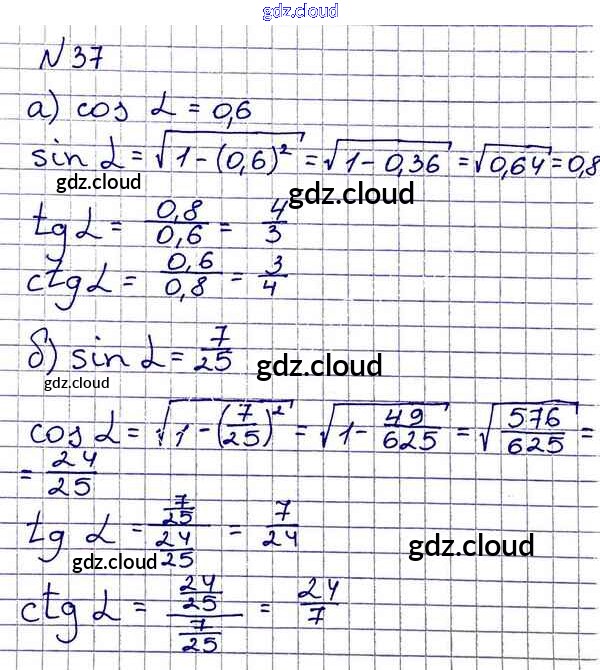 gdz.cloud
N 37
а) cos α = 0,6
sin α = √(1-(0,6)²) = √(1-0,36) = √0,64 = 0,8
gdz.cloud gdz.cloud
tg α = 0,8/0,6 = 4/3
ctg α = 0,6/0,8 = 3/4
б) sin α = 7/25 gdz.cloud
gdz.cloud
cos α = √(1-(7/25)²) = √(1-49/625) = √(576/625) =
= 24/25
tg α = (7/25)/(24/25) = 7/24 gdz.cloud
gdz.cloud
ctg α = (24/25)/(7/25) = 24/7